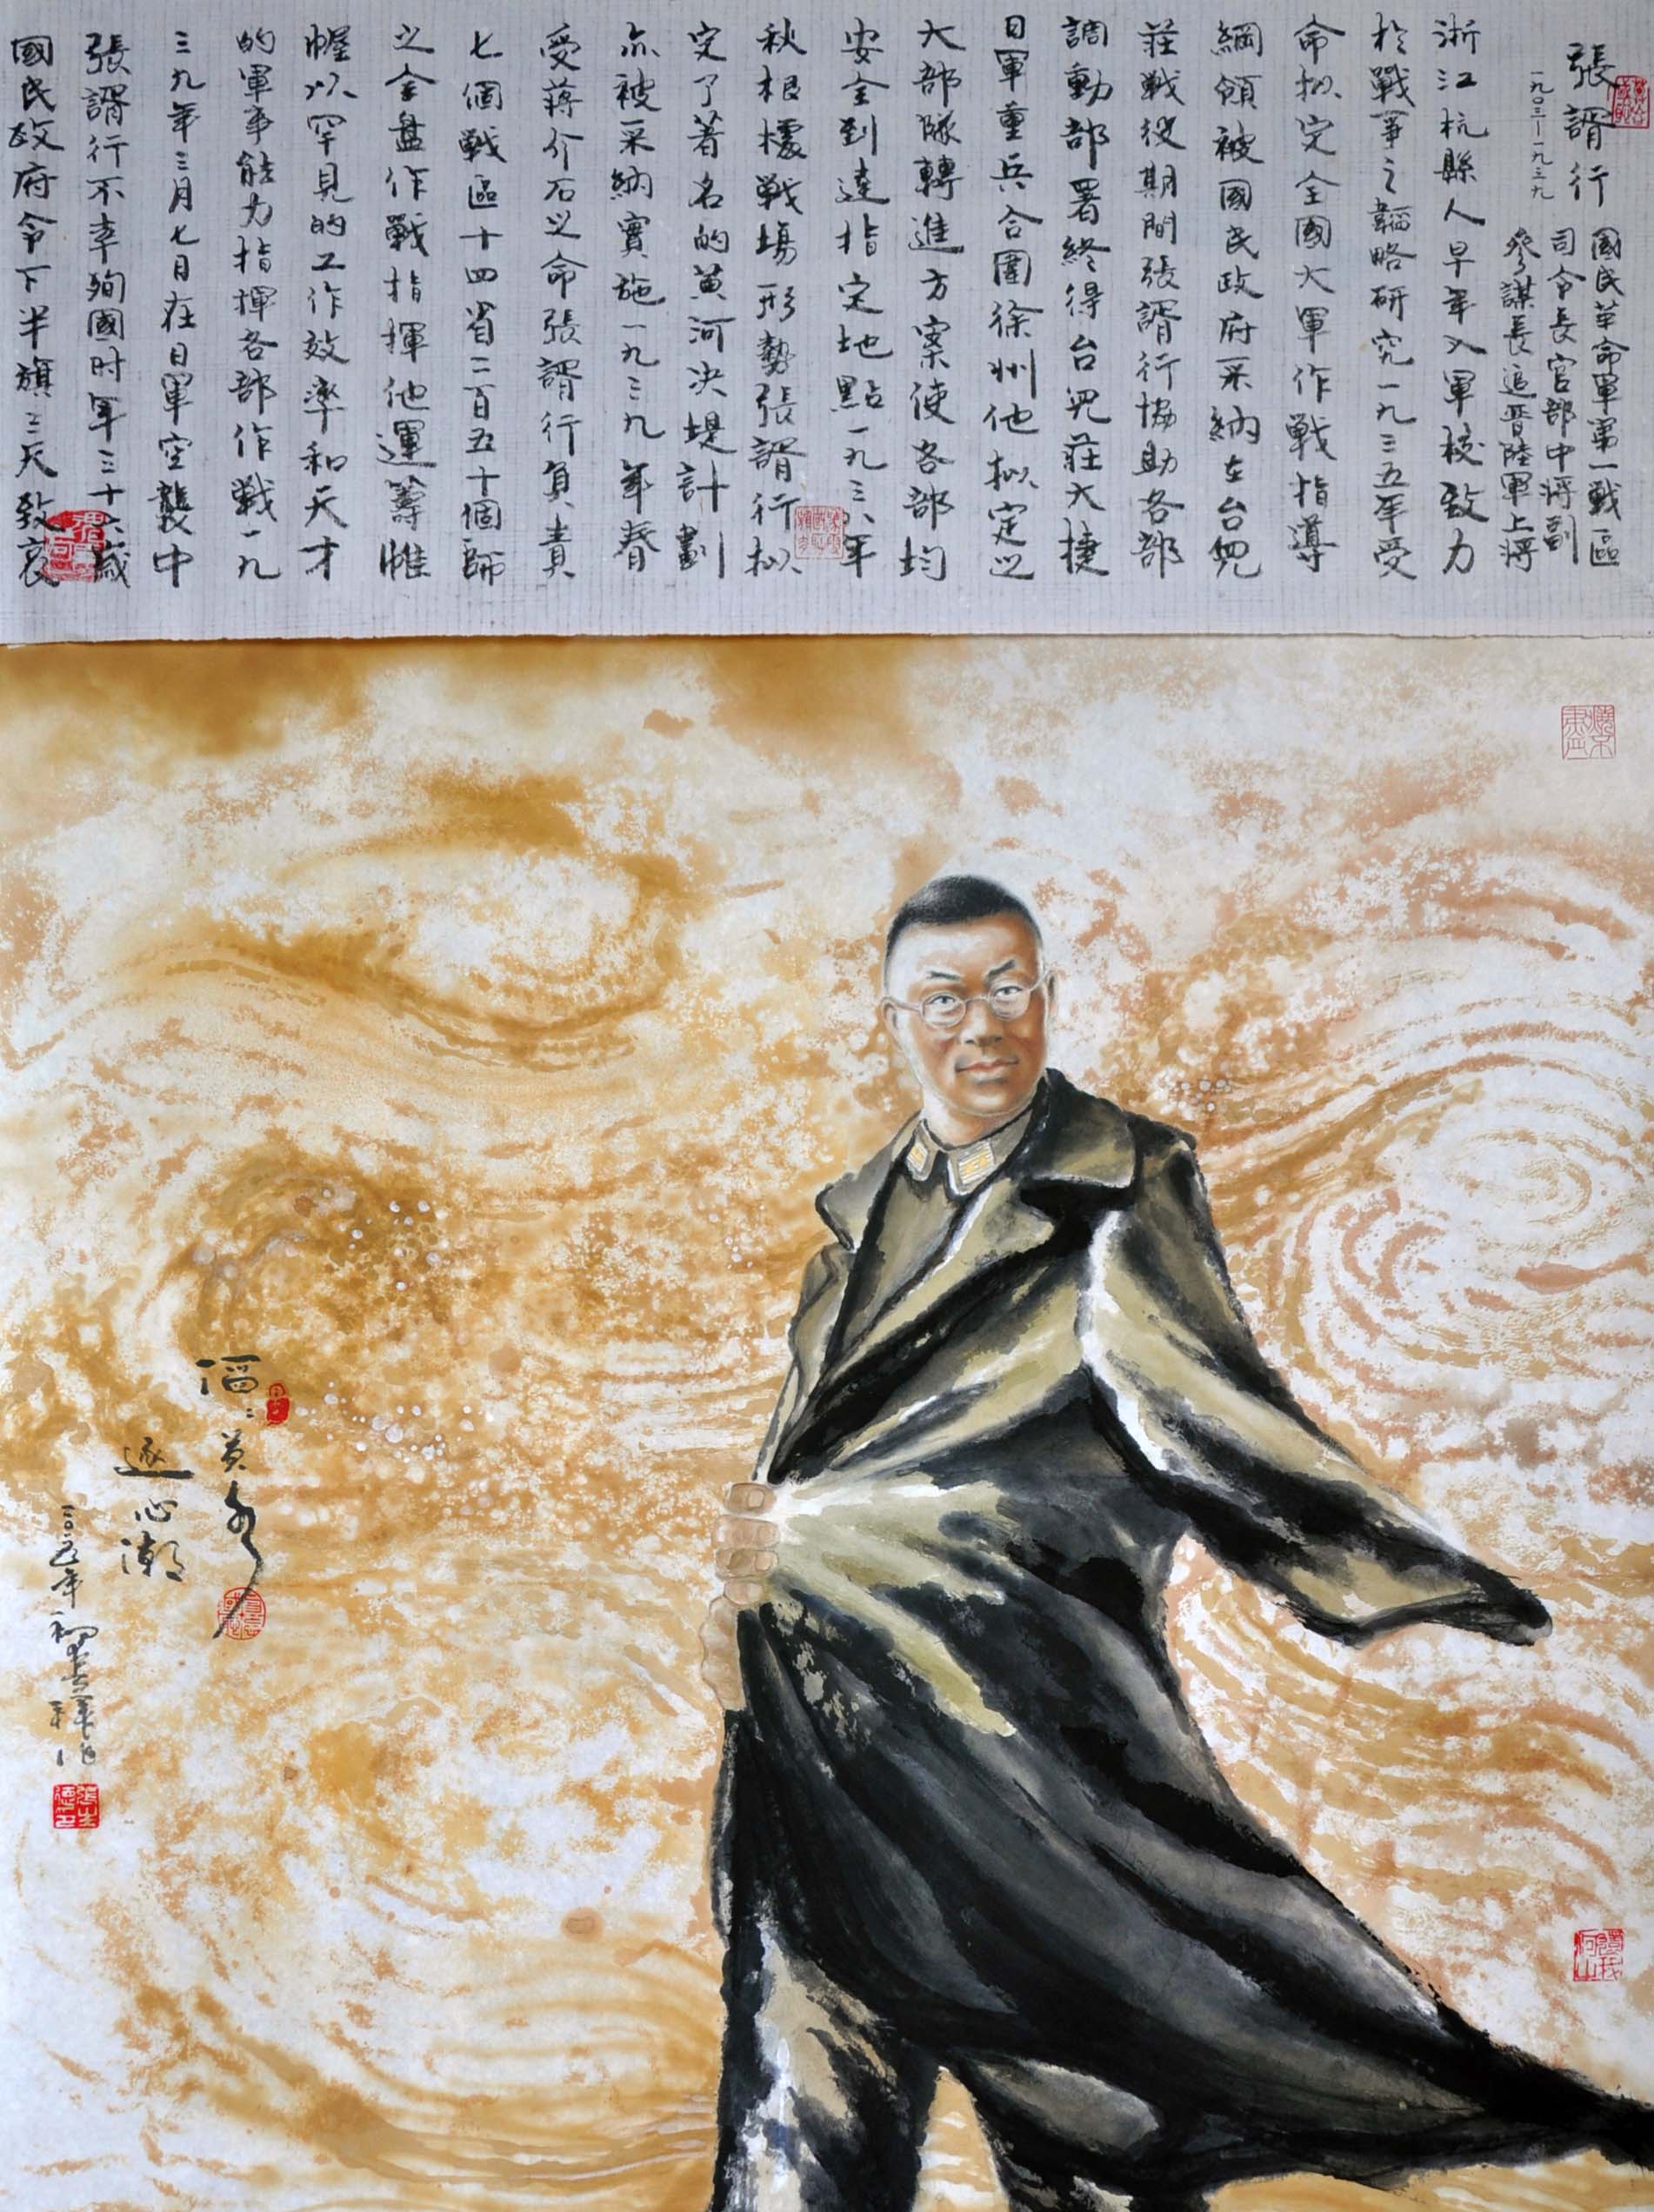 張諝行
一九〇三—一九三九
國民革命軍第一戰區
司令長官部中將副
參謀長追晉陸軍上將
浙江杭縣人早年入軍校致力
於戰爭之韜略研究一九三五年受
命拟定全國大軍作戰指導
綱領被國民政府采納在台兒
莊戰役期間張諝行協助各部
調動部署終得台兒莊大捷
日軍重兵合圍徐州他拟定之
大部隊轉進方案使各部均
安全到達指定地點一九三八年
秋根據戰場形勢張諝行拟
定了著名的黄河決堤計劃
亦被采納實施一九三九年春
受蔣介石之命張諝行負責
七個戰區十四省二百五十個師
之全盘作戰指揮他運籌帷
幄以罕見的工作效率和天才
的軍事能力指揮各部作戰一九
三九年三月七日在日軍空襲中
張諝行不幸殉國时年三十六歲
國民政府令下半旗三天致哀
滔〻黄水
逐心潮
二〇一五年初
作
還我河山